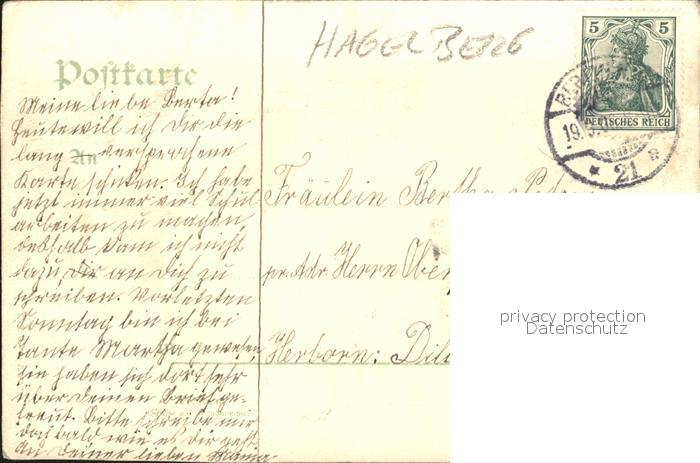 HAGELBERG
Postkarte
5 5
DEUTSCHES REICH
BER
19.
* 21 a
Meine liebe Berta!
Heute will ich Dir die
lang versprochene
An
Karte schicken. Ich habe
jetzt immer viel Schul
arbeiten zu machen,
deshalb kam ich nicht
dazu, Dir an Dich zu
schreiben. Vorletzten
Sonntag bin ich bei
Tante Martha gewesen,
Sie haben sich dort sehr
über Deinen Brief ge-
freut. Bitte schreibe mir
doch bald wie es Dir geht.
An Deiner lieben Mama
Fräulein Bertha
pr. Adr. Herrn Ober
Herborn: Dill
privacy protection
Datenschutz